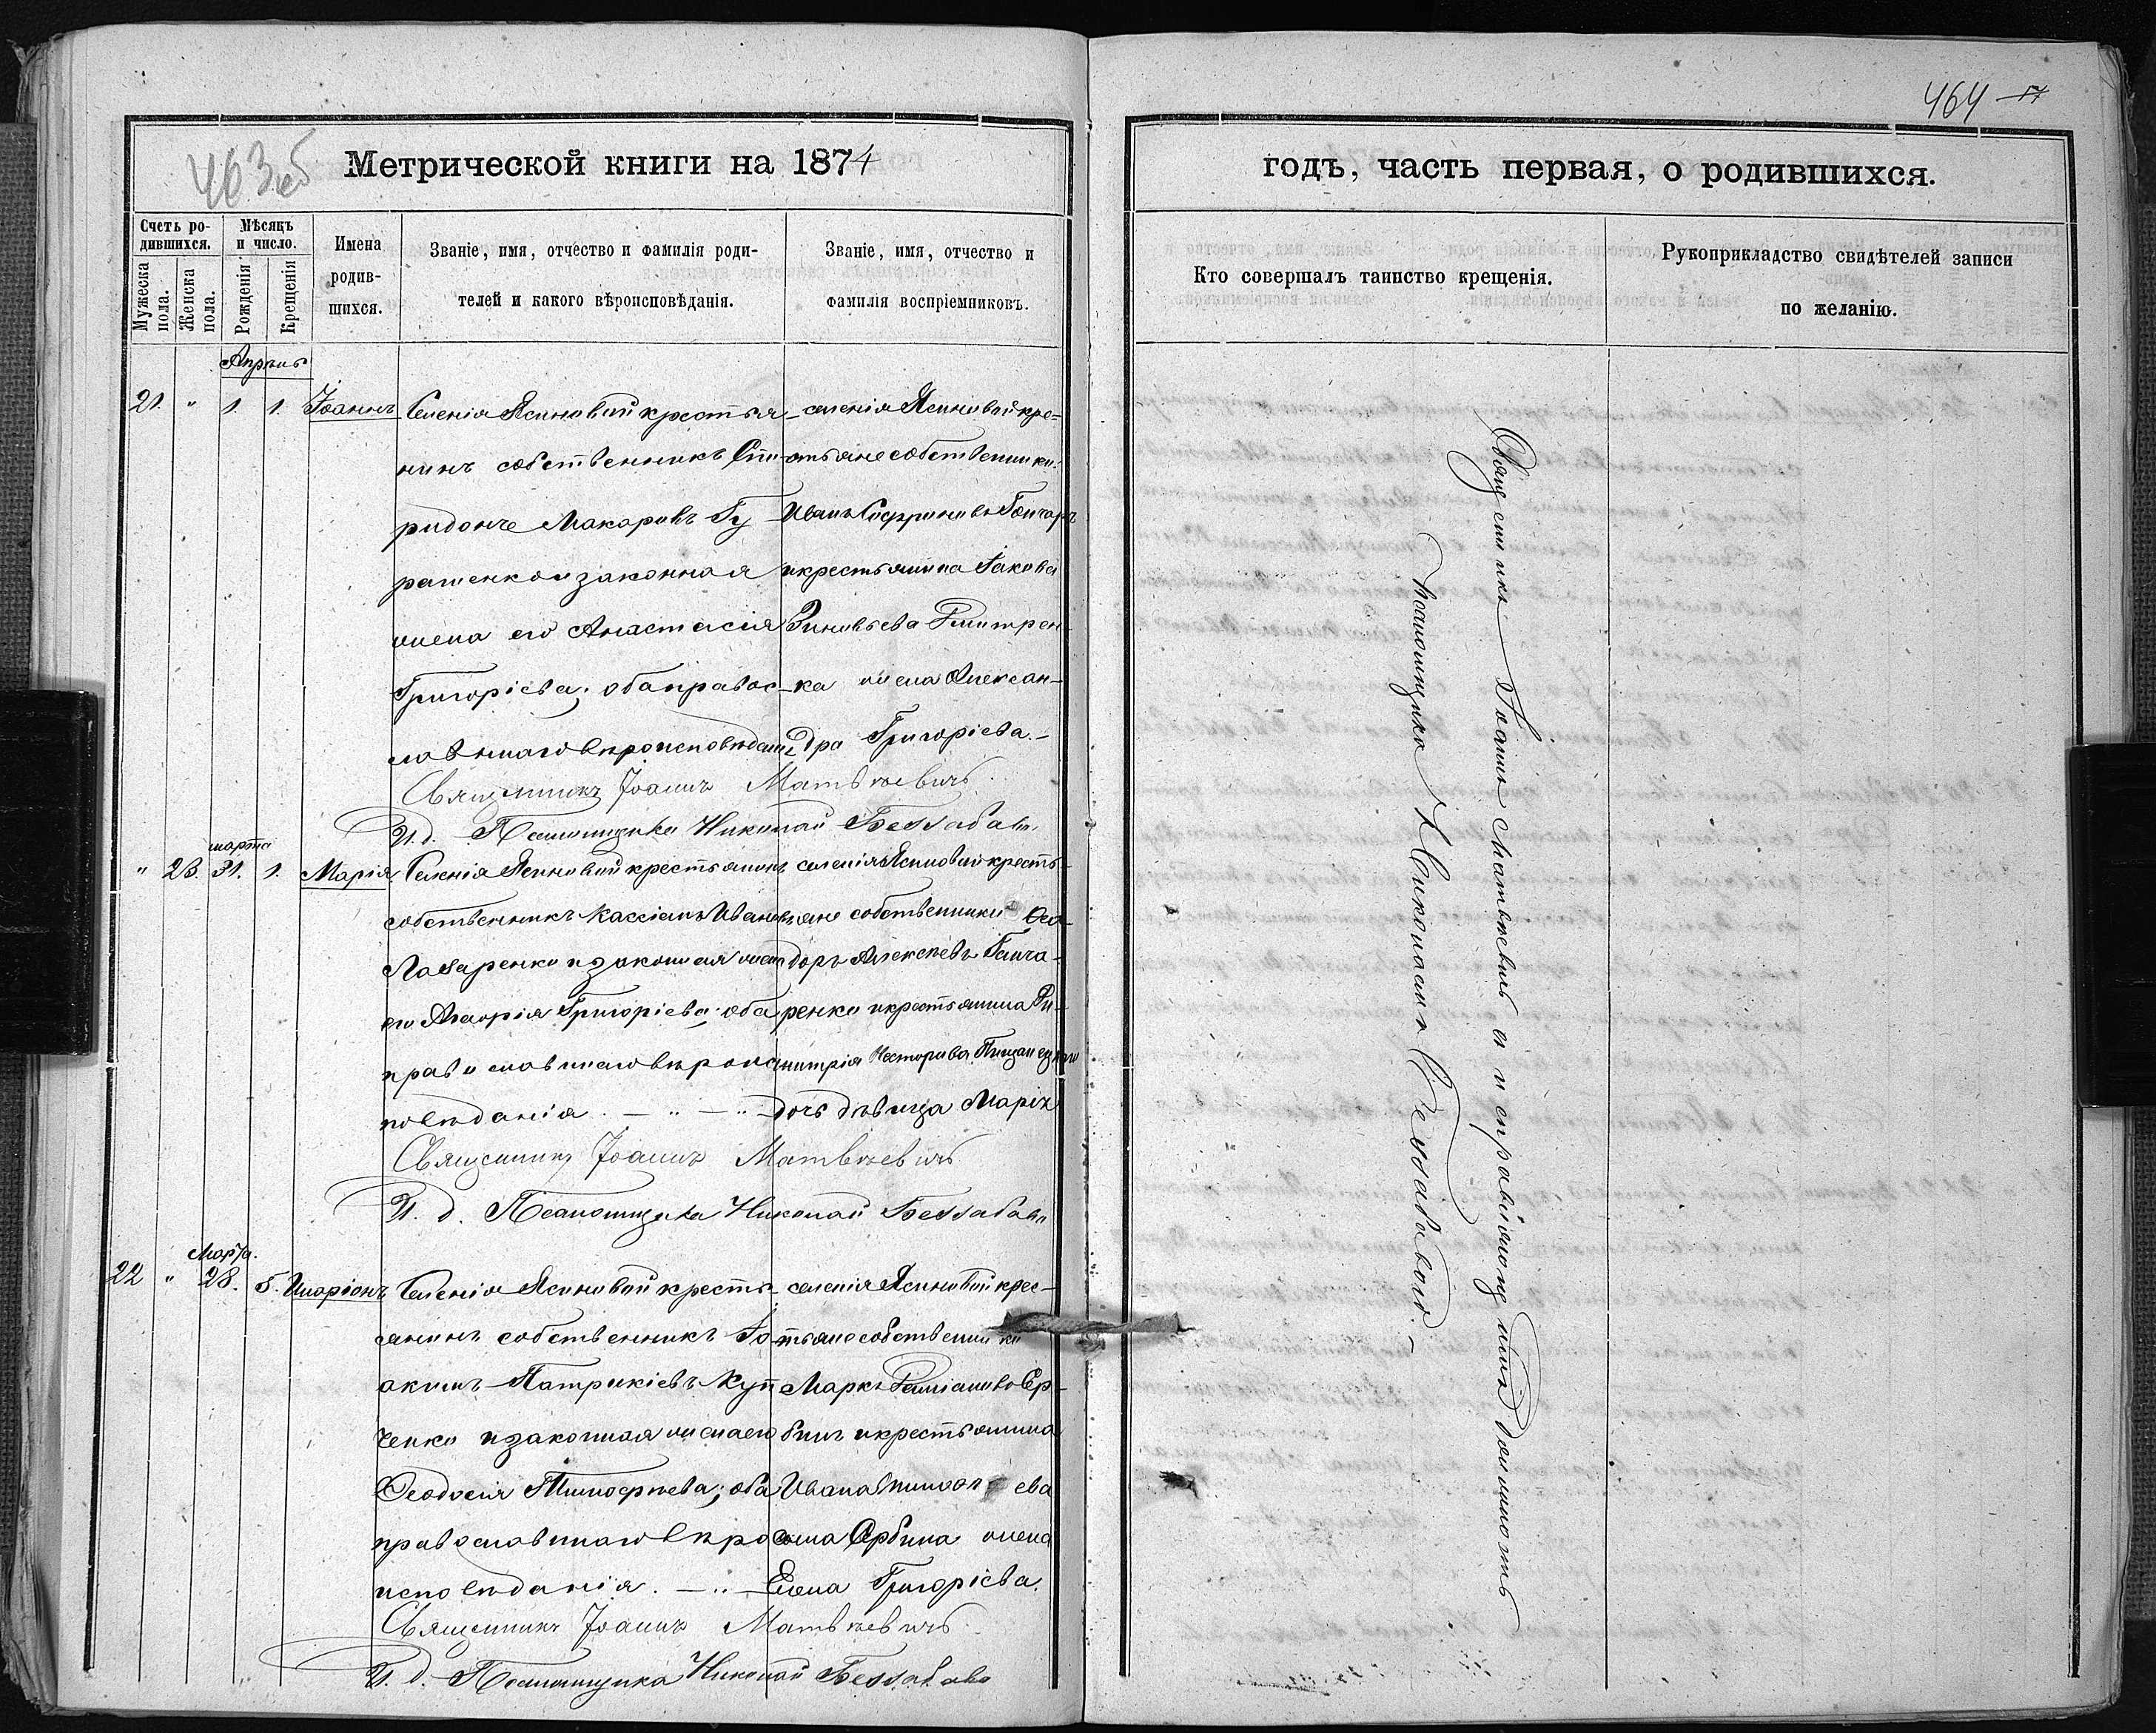 463об
Метрической книги на 1874
Счетъ ро-
дившихся.
Мужеска пола.
Женска пола.
Мѣсяцъ
и число.
Рожденія
Крещенія
Имена
родив-
шихся.
Званіе, имя, отчество и фамилія роди-
телей и какого вѣроисповѣданія.
Званіе, имя, отчество и
фамилія воспріемниковъ.
Апрѣль
21. " 1. 1. Іоаннъ
Селенія Ясиновой крестья-
нинъ собственникъ Спи-
ридонъ Макаровъ
и законная
жена его Анастасія
Григоріева; оба правос-
лавнаго вѣроисповѣданія
селенія Ясиновой кре-
стьяне собственники:
Иванъ Софроновъ Гончаръ
и крестьянина Іакова
Зиновьева Дмитрен-
ка жена Алексан-
дра Григоріева.
Священникъ Іоаннъ Матвѣевичъ
И. д. Псаломщика Николай
марта
" 23. 31. 1. Марія
Селенія Ясиновой крестьянинъ
собственникъ Кассіанъ Ивановъ
Лазаренко и законная жена
его Григоріева; оба
православнаго вѣроис-
повѣданія.
селенія Ясиновой кресть-
яне собственники Ѳео-
доръ Алексѣевъ Гонча-
ренко и крестьянина Ди-
митрія Несторова
дочь дѣвица Марія
Священникъ Іоаннъ Матвѣевичъ
И. д. Псаломщика Николай
Марта.
22 " 28. 5. Иларіонъ
Селенія Ясиновой кресть-
янинъ собственникъ Іо-
акимъ Патрикіевъ Куп-
ченко и законная жена его
Ѳеодосія Тимоѳеева; оба
православнаго вѣро-
исповѣданія.
селенія Ясиновой крес-
тьяне собственники
Маркъ Даміановъ Сер-
бинъ и крестьянина
Ивана
Сербина жена
Елена Григоріева.
Священникъ Іоаннъ Матвѣевичъ
И. д. Псаломщика Николай
464
17
годъ, часть первая, о родившихся.
Кто совершалъ таинство крещенія.
Рукоприкладство свидѣтелей записи
по желанію.
Священникъ Іоаннъ Матвѣевичъ съ исправляющимъ должность
псаломщика Николаемъ